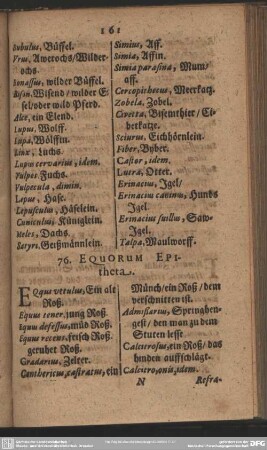 161
Bubulus, Büffel.
Vrus, Awerochs/Wilder-
ochs.
Bonassus, wilder Büffel.
Bison, Wisend/wilder E-
sel/oder wild Pferd.
Alce, ein Elend.
Lupus, Wolff.
Lupa, Wölffin.
Linx, Luchs.
Lupus cervarius, idem.
Vulpes, Fuchs.
Vulpecula, dimin.
Lepus, Hase.
Lepusculus, Häselein.
Cuniculus, Küniglein.
Meles, Dachs.
Satyrs, Geißmännlein.
Simius, Aff.
Simia, Affin.
Simia parasina, Mum/
aff.
Cercopithecus, Meerkatz.
Zobela, Zobel.
Civetta, Bisemthier/Ci-
betkatze.
Sciurus, Eichhörnlein.
Fiber, Byber.
Castor, idem.
Lutra, Otter.
Erinacius, Igel/
Erinacius caninus, Hunds
Igel.
Erinacius suillus, Saw-
Igel.
Talpa, Maulworff.
76. EQUORUM EPI-
theta.
EQuus vetulus, Ein alt
Roß.
Equus tener, jung Roß.
Equus defessus, müd Roß.
Equus recens, frisch Roß.
geruhet Roß.
Gradarius, Zelter.
Canthericus, castratus, ein
Münch/ein Roß/dem
verschnitten ist.
Admissarius, Springhen-
gest/den man zu dem
Stuten lesst.
Calcitrosus, ein Roß/das
hinden auffschlägt.
Calcitro, onis, idem.
N
Refra-